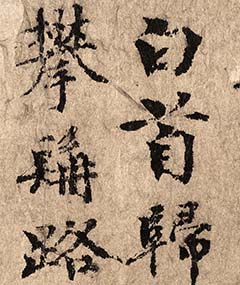 白首歸
攀路